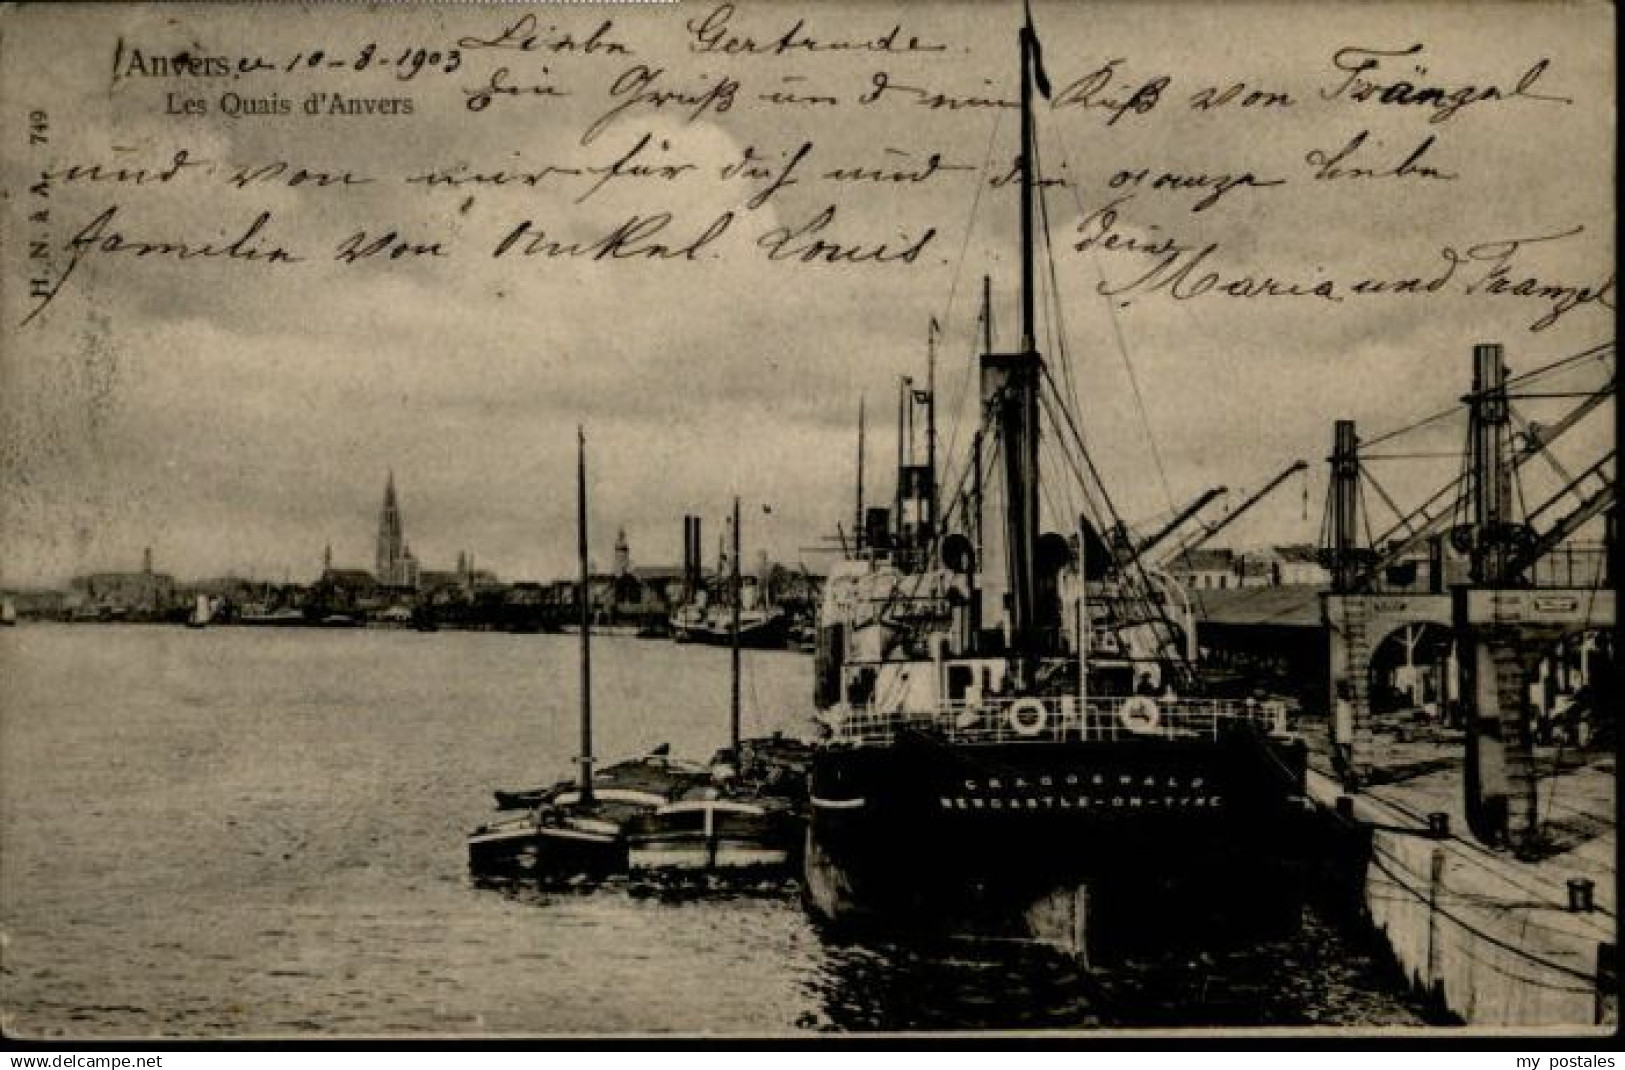 Anvers, 10-8-1903
Les Quais d'Anvers
Liebe Gertrude.
Ein Gruß und ein Kuß von Fränzel
und von mir für dich und die ganze liebe
familie von Onkel. Louis. deine
Maria und Franzel
H. N. à A. 749
CRAGGSWALD
NEWCASTLE-ON-TYNE
delcampe.net
my_postales